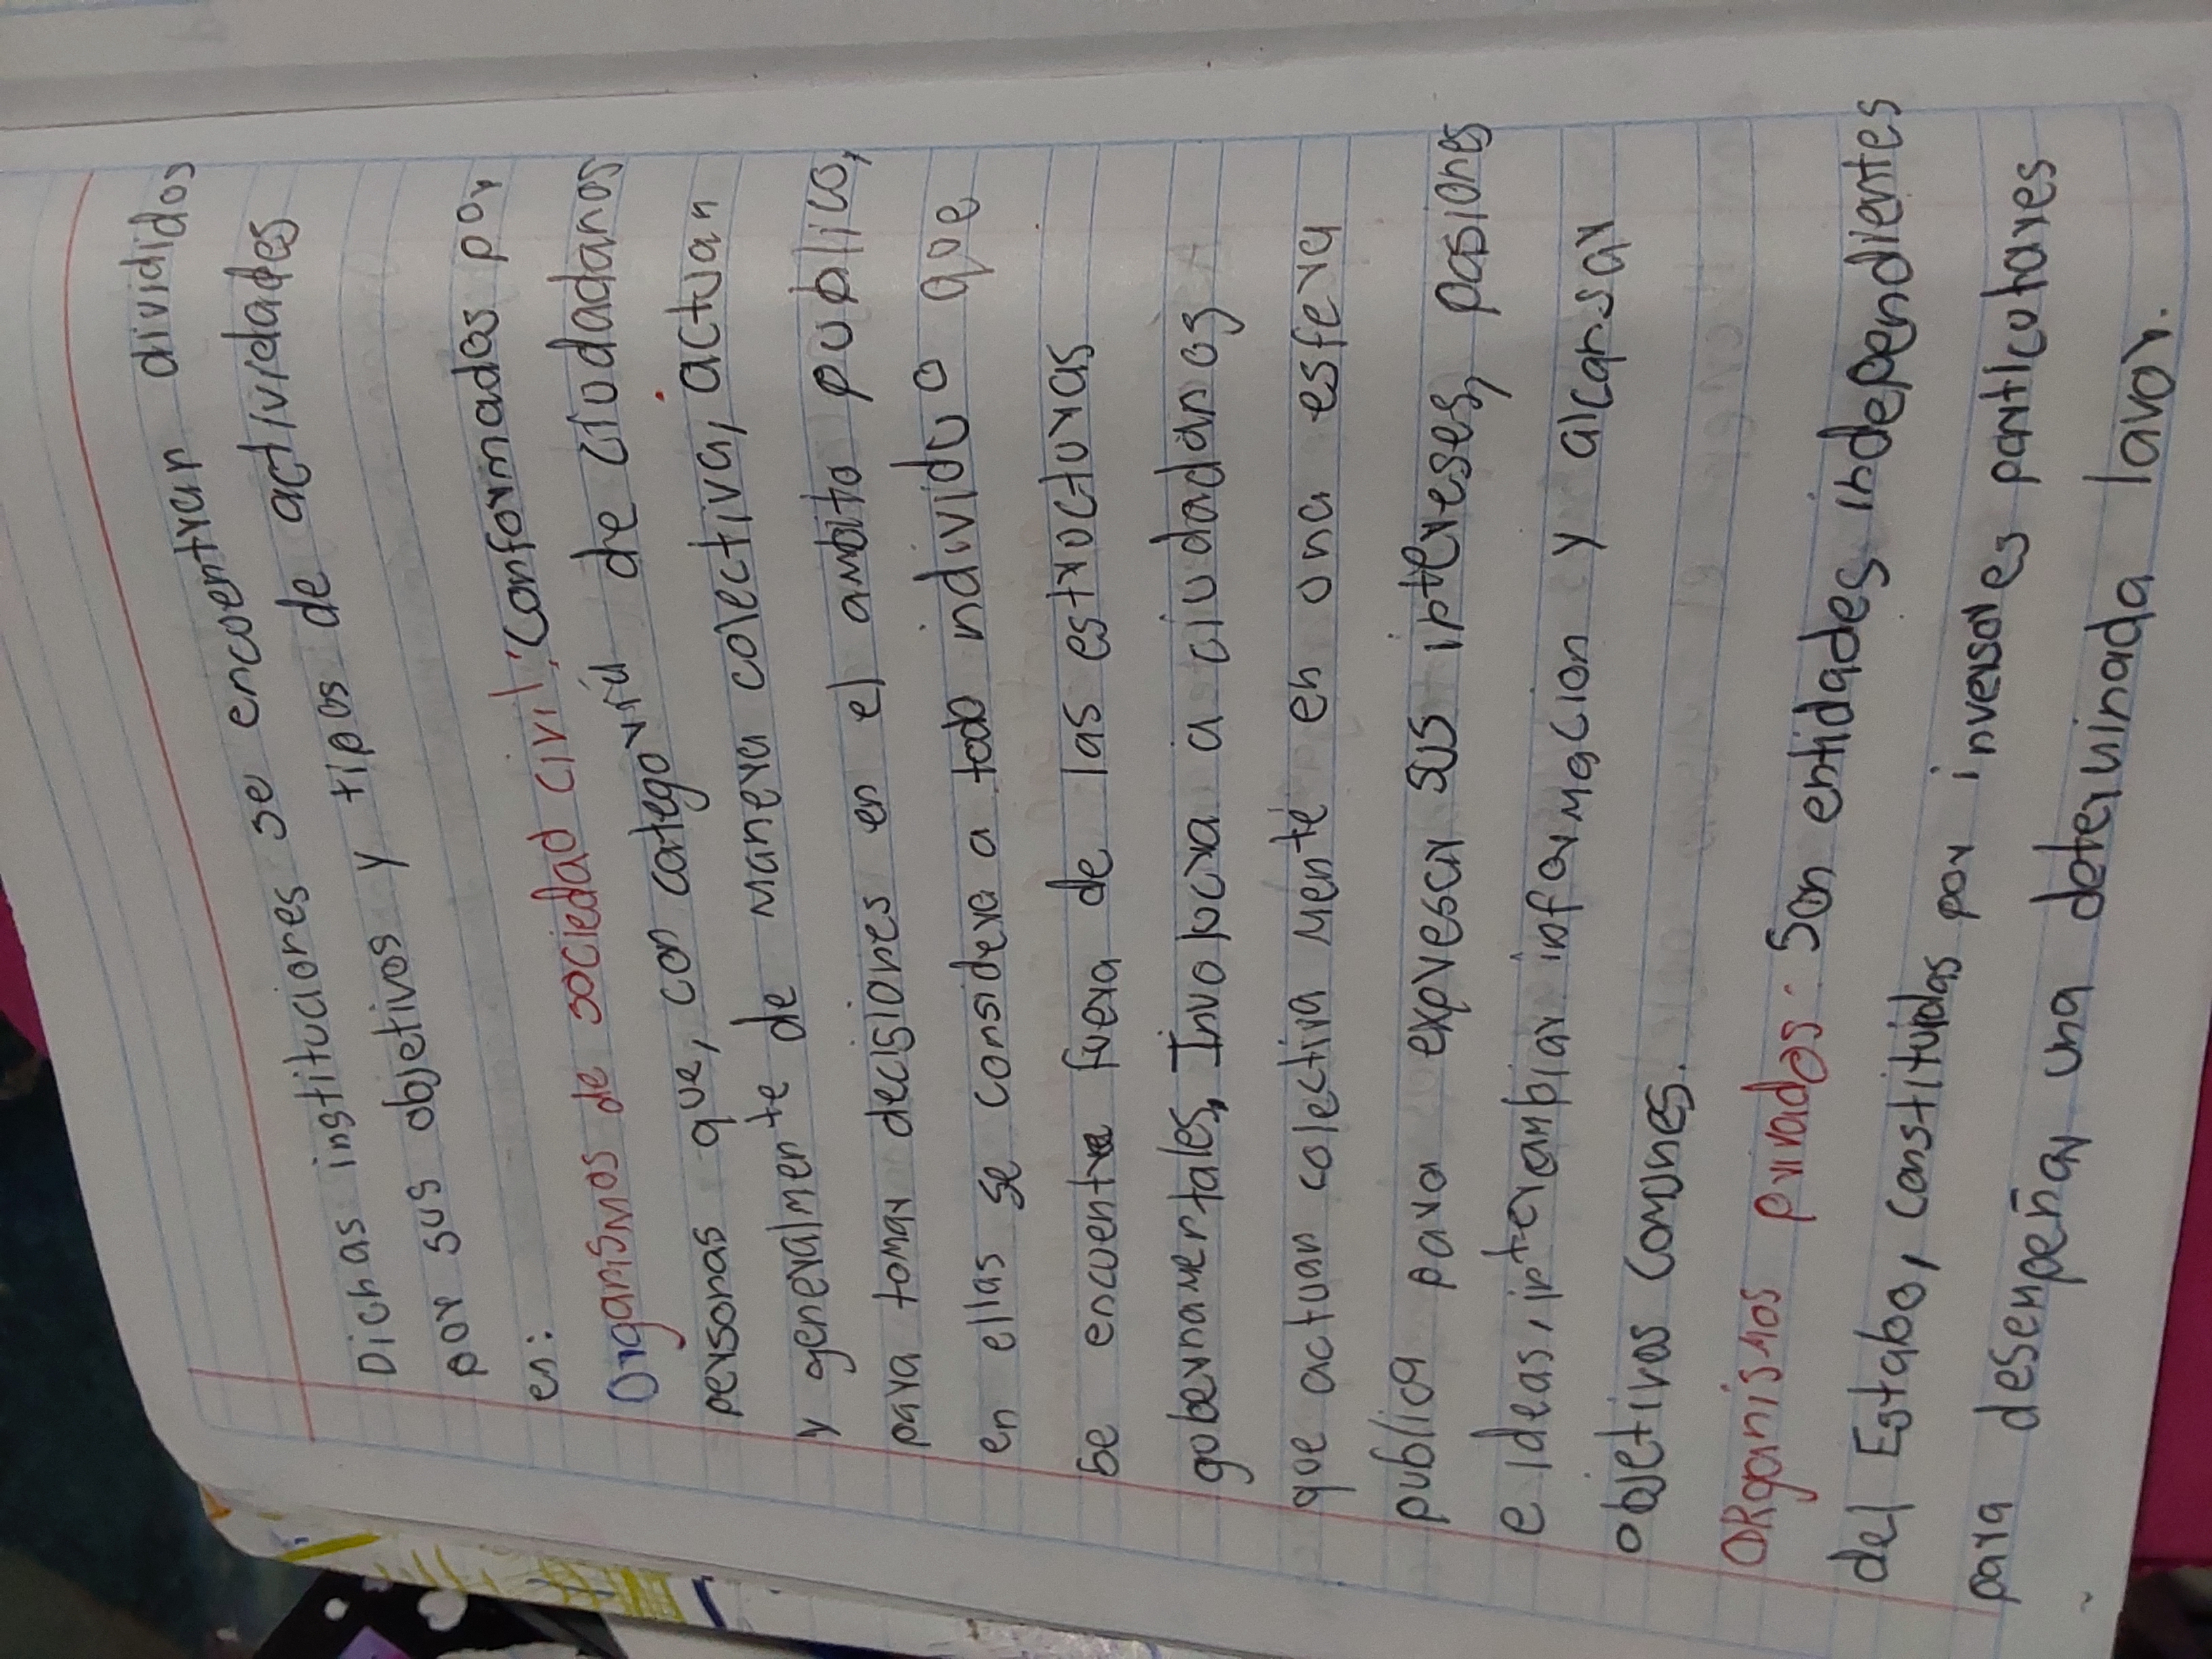 Dichas instituciones se encuentran divididos
por sus objetivos y tipos de actividades
en:
Organismos de sociedad civil: Conformados por
personas que, con categoría de ciudadanos
y generalmente de manera colectiva, actuan
para tomar decisiones en el ambito publico,
en ellas se considera a todo individuo que
se encuentra fuera de las estructuras
gubernamentales, Involucra a ciudadanos
que actuan colectiva mente en una esfera
publica para expresar sus intereses, pasiones
e ideas, intercambiar información y alcansar
objetivos comunes.
ORganismos privados: Son entidades independientes
del Estabo, constituidas por inversores particulares
para desenpeñar una determinada lavor.